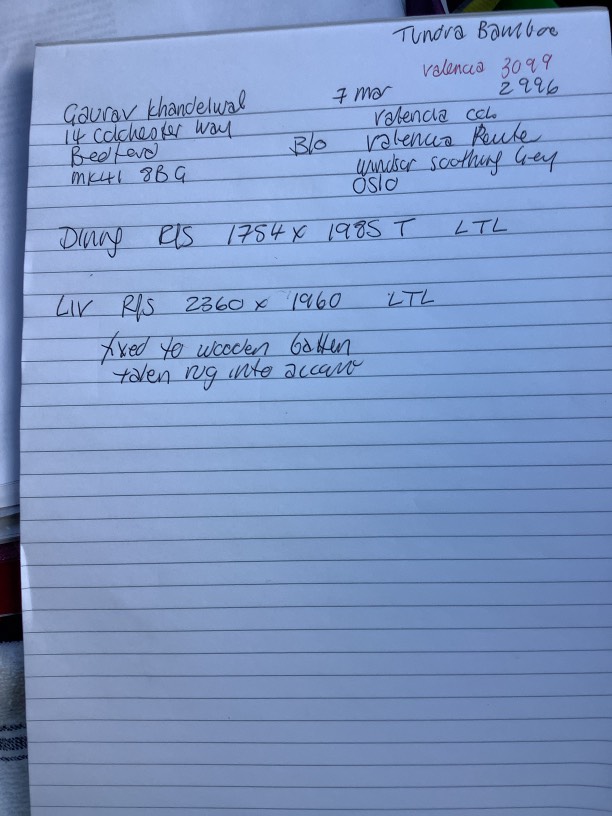 Tundra Bamboo
Valencia 3099
2996
Gaurav Khandelwal
7 Mar
14 Colchester Way
Valencia
Bedford
B/o Valencia Route
MK41 8BG
Windsor Soothing Grey
Oslo
Dining R/S 1754 x 1985 T LTL
LIV R/S 2360 x 1960 LTL
fixed to wooden batten
taken rug into